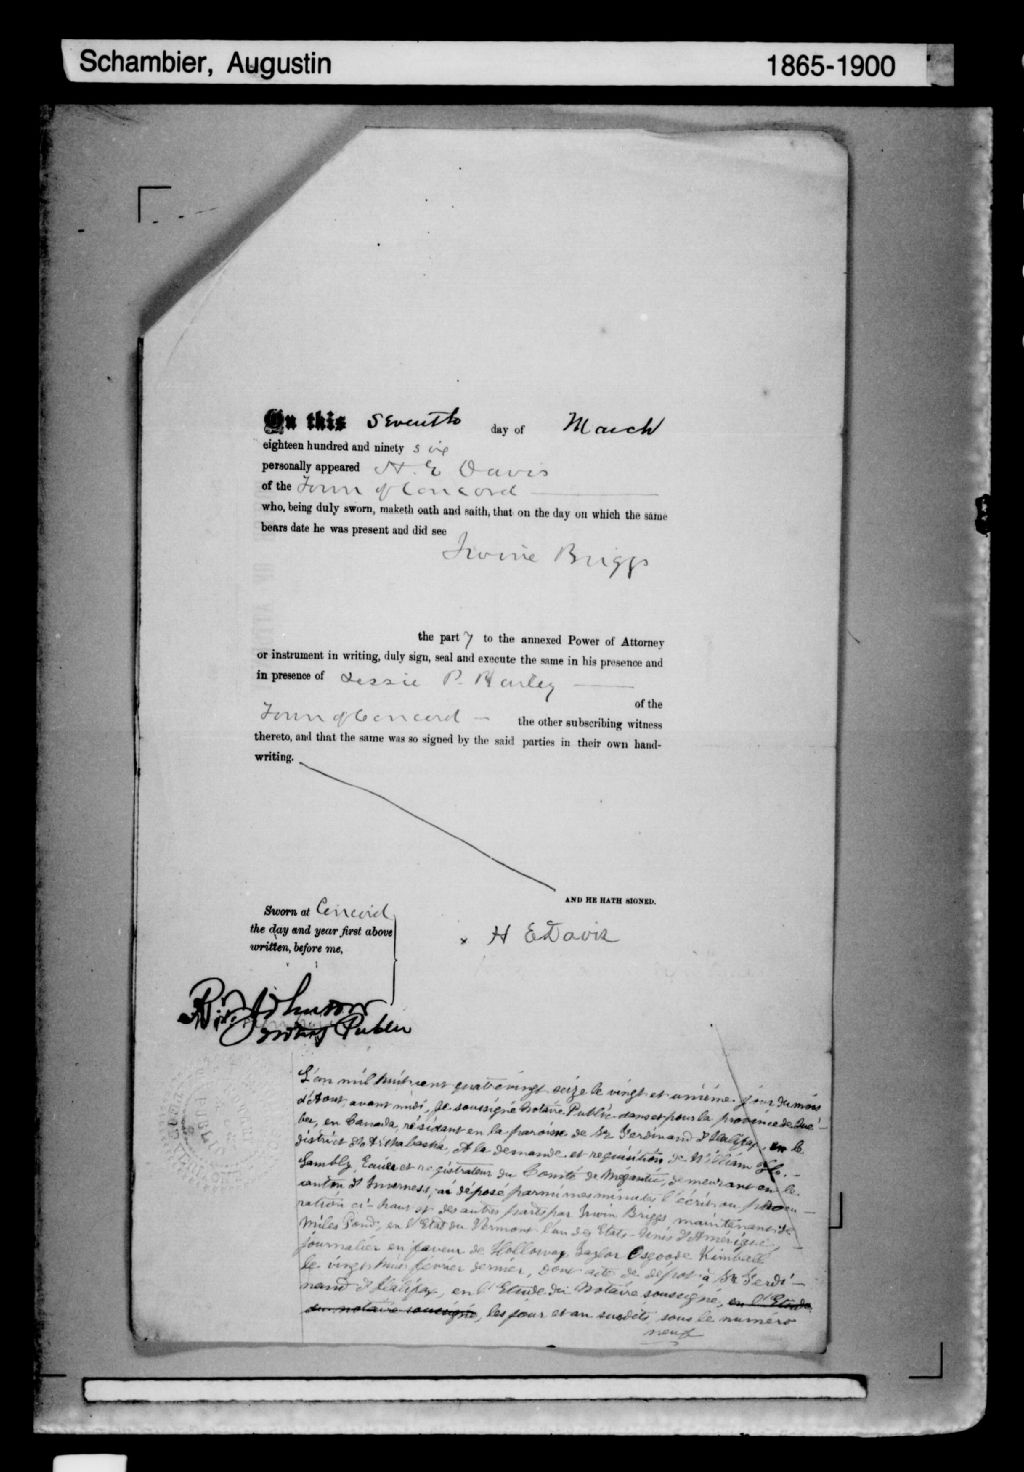 Schambier, Augustin 1865-1900
On this Seventh day of March
eighteen hundred and ninety six
personally appeared H. E Davis
of the Town of Concord
who, being duly sworn, maketh oath and saith, that on the day on which the same
bears date he was present and did see
Irvine Briggs
the part y to the annexed Power of Attorney
or instrument in writing, duly sign, seal and execute the same in his presence and
in presence of Jessie P. Harley
of the
Town of Concord the other subscribing witness
thereto, and that the same was so signed by the said parties in their own hand-
writing.
AND HE HATH SIGNED.
Sworn at Concord
the day and year first above
written, before me,
x H E Davis
Johnson
Notary Public
L'an mil huit cent quatrevingt seize le vingt et unième jour du mois
d'Aout, avant midi, Je soussigné Notaire Public dans et pour la province de Qué-
bec, en Canada, résidant en la paroisse de St Ferdinand d'Halifax, en le
district d'Arthabaska, A la demande et requisition de William H.
Lambly, Ecuier et registrateur du Comté de Mégantic, demeurant en le
canton d'Inverness, ai déposé parmi mes minutes l'écrit ou procu-
ration ci-haut et des autres parts par Irwin Briggs maintenant de
Miles Pond, en l'Etat du Vermont l'un des Etats-Unis d'Amérique,
journalier en faveur de Holloway Taylor Osgoode Kimball
le vingt huit février dernier, dont acte de dépot à St Ferdi-
nand d'Halifax, en l'Etude du Notaire soussigné, en l'Etude
du notaire soussigné, les jour et an susdits sous le numéro
neuf